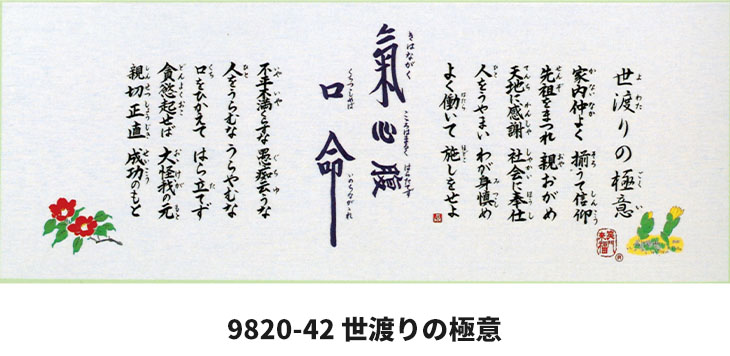 世渡りの極意
家内仲よく 揃うて信仰
先祖をまつれ 親おがめ
天地に感謝 社会に奉仕
人をうやまい わが身慎め
よく働いて 施しをせよ
氣 心 腹
きはながく こころはまるく はらたてず
口 命
くちつつしめば いのちながかれ
不平不満くらすな 愚痴云うな
人をうらむな うらやむな
口をひかえて はら立てず
貪慾起せば 大怪我の元
親切正直 成功のもと
笑門来福
9820-42 世渡りの極意